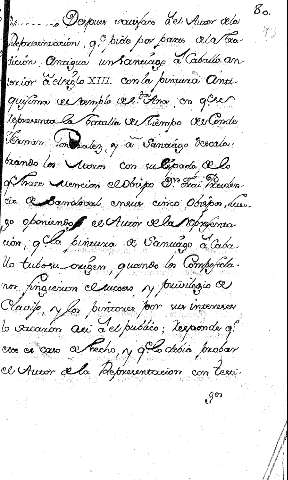 80.
Despues satisfaze à el Autor de la
Representacion, q.e pide por parte de la Tra-
dicion Antigua un Santiago à Caballo an-
terior à el siglo XIII. con la pintura Anti-
quissima de templo de S.ta Ana, en q.e se
representa la Batalla de tiempo de Conde
Fernan Gonzales, y à Santiago descala-
brando los Moros con su Espada de lo
q.e hace mencion el Obispo D.n Frai Pruden-
cio de Sandoval, en sus cinco Obispos, lue-
go oponiendo el Autor de la Representa-
cion, q.e la pintura de Santiago à Caba-
llo tubo su origen, quando los Compostela-
nos fingieron el suceso, y privilegio de
Clavijo, y los pintores por sus intereses
lo sacaron asi à el publico; responde q.e
ese es caso de hecho, y q.e lo debia probar
el Autor de la Representacion con testi-
gos